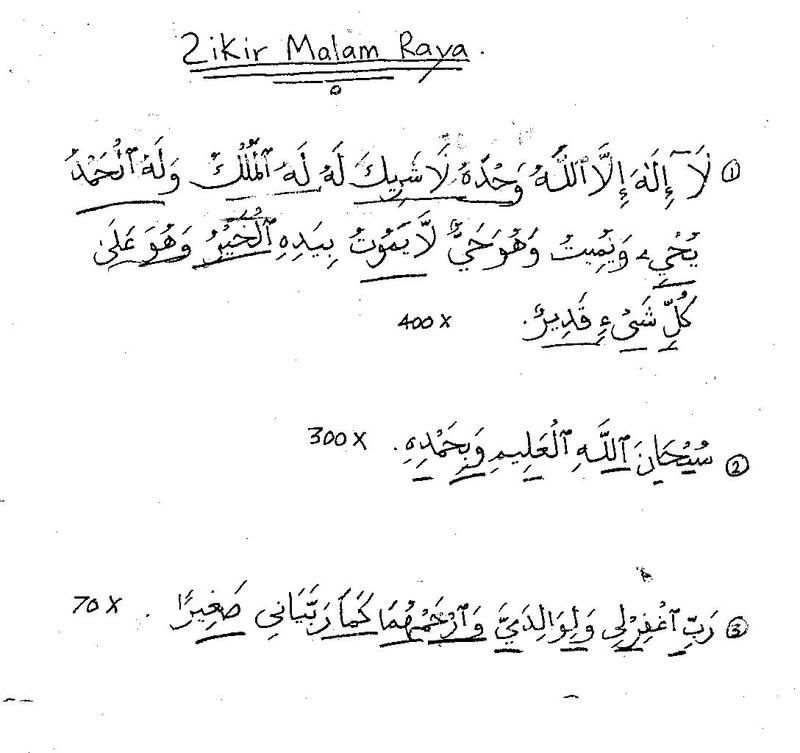 Zikir Malam Raya.
① لَآ إِلَهَ إِلَّا ٱللَّهُ وَحْدَهُ لَا شَرِيكَ لَهُ لَهُ ٱلْمُلْكُ وَلَهُ ٱلْحَمْدُ
يُحْيِي وَيُمِيتُ وَهُوَ حَيٌّ لَّا يَمُوتُ بِيَدِهِ ٱلْخَيْرُ وَهُوَ عَلَىٰ
كُلِّ شَىْءٍ قَدِيرٌ. 400 X
② سُبْحَانَ ٱللَّهِ ٱلْعَلِيمِ وَبِحَمْدِهِ. 300 X
③ رَبِّ ٱغْفِرْلِى وَلِوَالِدَيَّ وَٱرْحَمْهُمَا كَمَا رَبَّيَانِى صَغِيرًا. 70 X